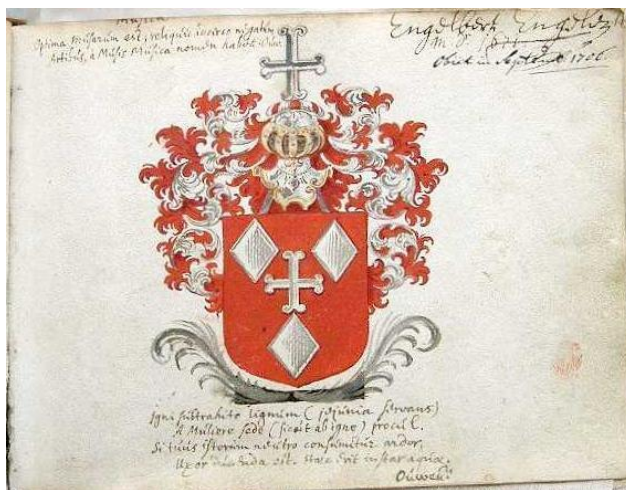 Musica
Optima Musarum est, reliquis
Artibus, a Musis Musica nomen habet
Engelbert Engels
Obiit in Sept 1706.
Igni subtrahito lignum (jejunia servans)
A Muliere sede (sicut ab igne) procul
Si tuus istorum neutro consumitur ardor,
Uxor ducenda est. Haec erit instar aquae.
Ouweni